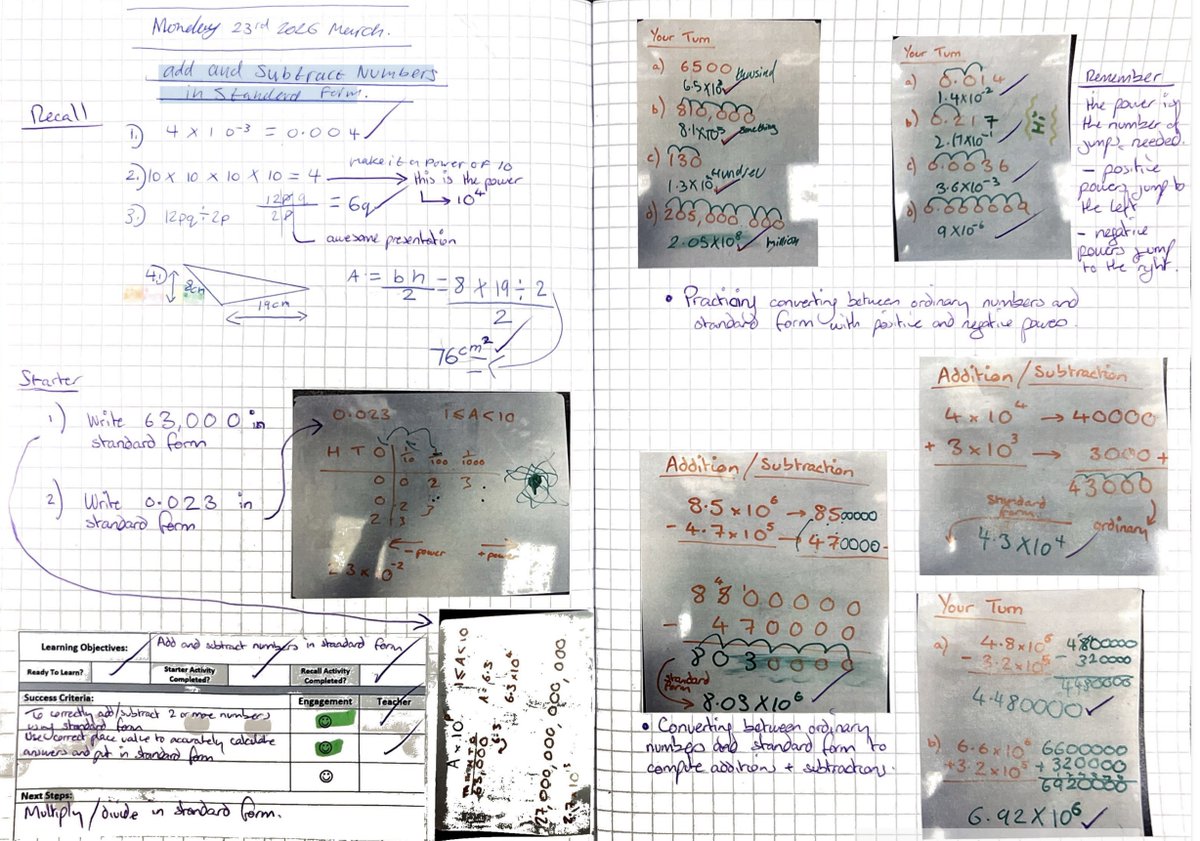 Monday 23rd 2026 March.
add and Subtract Numbers
in Standard Form.
Recall
1.) 4 × 10⁻³ = 0.004
2.) 10 × 10 × 10 × 10 = 4
make it a power of 10
this is the power
10⁴
3.) 12pq ÷ 2p
12pq
2p
= 6q
awesome presentation
4.)
8cm
19cm
A = bh/2 = 8 × 19 ÷ 2
2
76cm²
Starter
1) Write 63,000 in
standard form
2) Write 0.023 in
standard form
0.023 1 ≤ A < 10
H T O 1/10 1/100 1/1000
0 0 2 3
0
0 2 3
2 3
- power + power
2.3 × 10⁻²
Learning Objectives: Add and subtract numbers in standard form
Ready To Learn? Starter Activity Completed? Recall Activity Completed?
Success Criteria: Engagement Teacher
To correctly add/subtract 2 or more numbers
using standard form
Use correct place value to accurately calculate
answers and put in standard form
Next Steps:
Multiply/divide in standard form.
A × 10ⁿ 1 ≤ A < 10
63,000 A = 6.3
6.3 × 10⁴
27,000,000 000,000
2.7 × 10¹³
Your Turn
a) 6500
thousand
6.5 × 10³
b) 810,000
8.1 × 10⁵ something
c) 130
Hundred
1.3 × 10²
d) 205,000 000
2.05 × 10⁸ million
Your Turn
a) 0.014
1.4 × 10⁻²
b) 0.217
2.17 × 10⁻¹
Hi
c) 0.0036
3.6 × 10⁻³
d) 0.000009
9 × 10⁻⁶
Remember
the power is
the number of
jumps needed.
- positive
powers jump to
the left
- negative
powers jump
to the right.
• Practicing converting between ordinary numbers and
standard form with positive and negative powers.
Addition / Subtraction
4 × 10⁴ → 40000
+ 3 × 10³ → 3000 +
43000
Standard form
ordinary
4.3 × 10⁴
Addition / Subtraction
8.5 × 10⁶ → 8500000
- 4.7 × 10⁵ → 470000 -
8500000
- 470000
8030000
Standard form
8.03 × 10⁶
• Converting between ordinary
numbers and standard form to
compute additions + subtractions.
Your Turn
a) 4.8 × 10⁶ 4800000
- 3.2 × 10⁵ - 320000
4480000
4.480000
b) 6.6 × 10⁶ 6600000
+ 3.2 × 10⁵ + 320000
6920000
6.92 × 10⁶